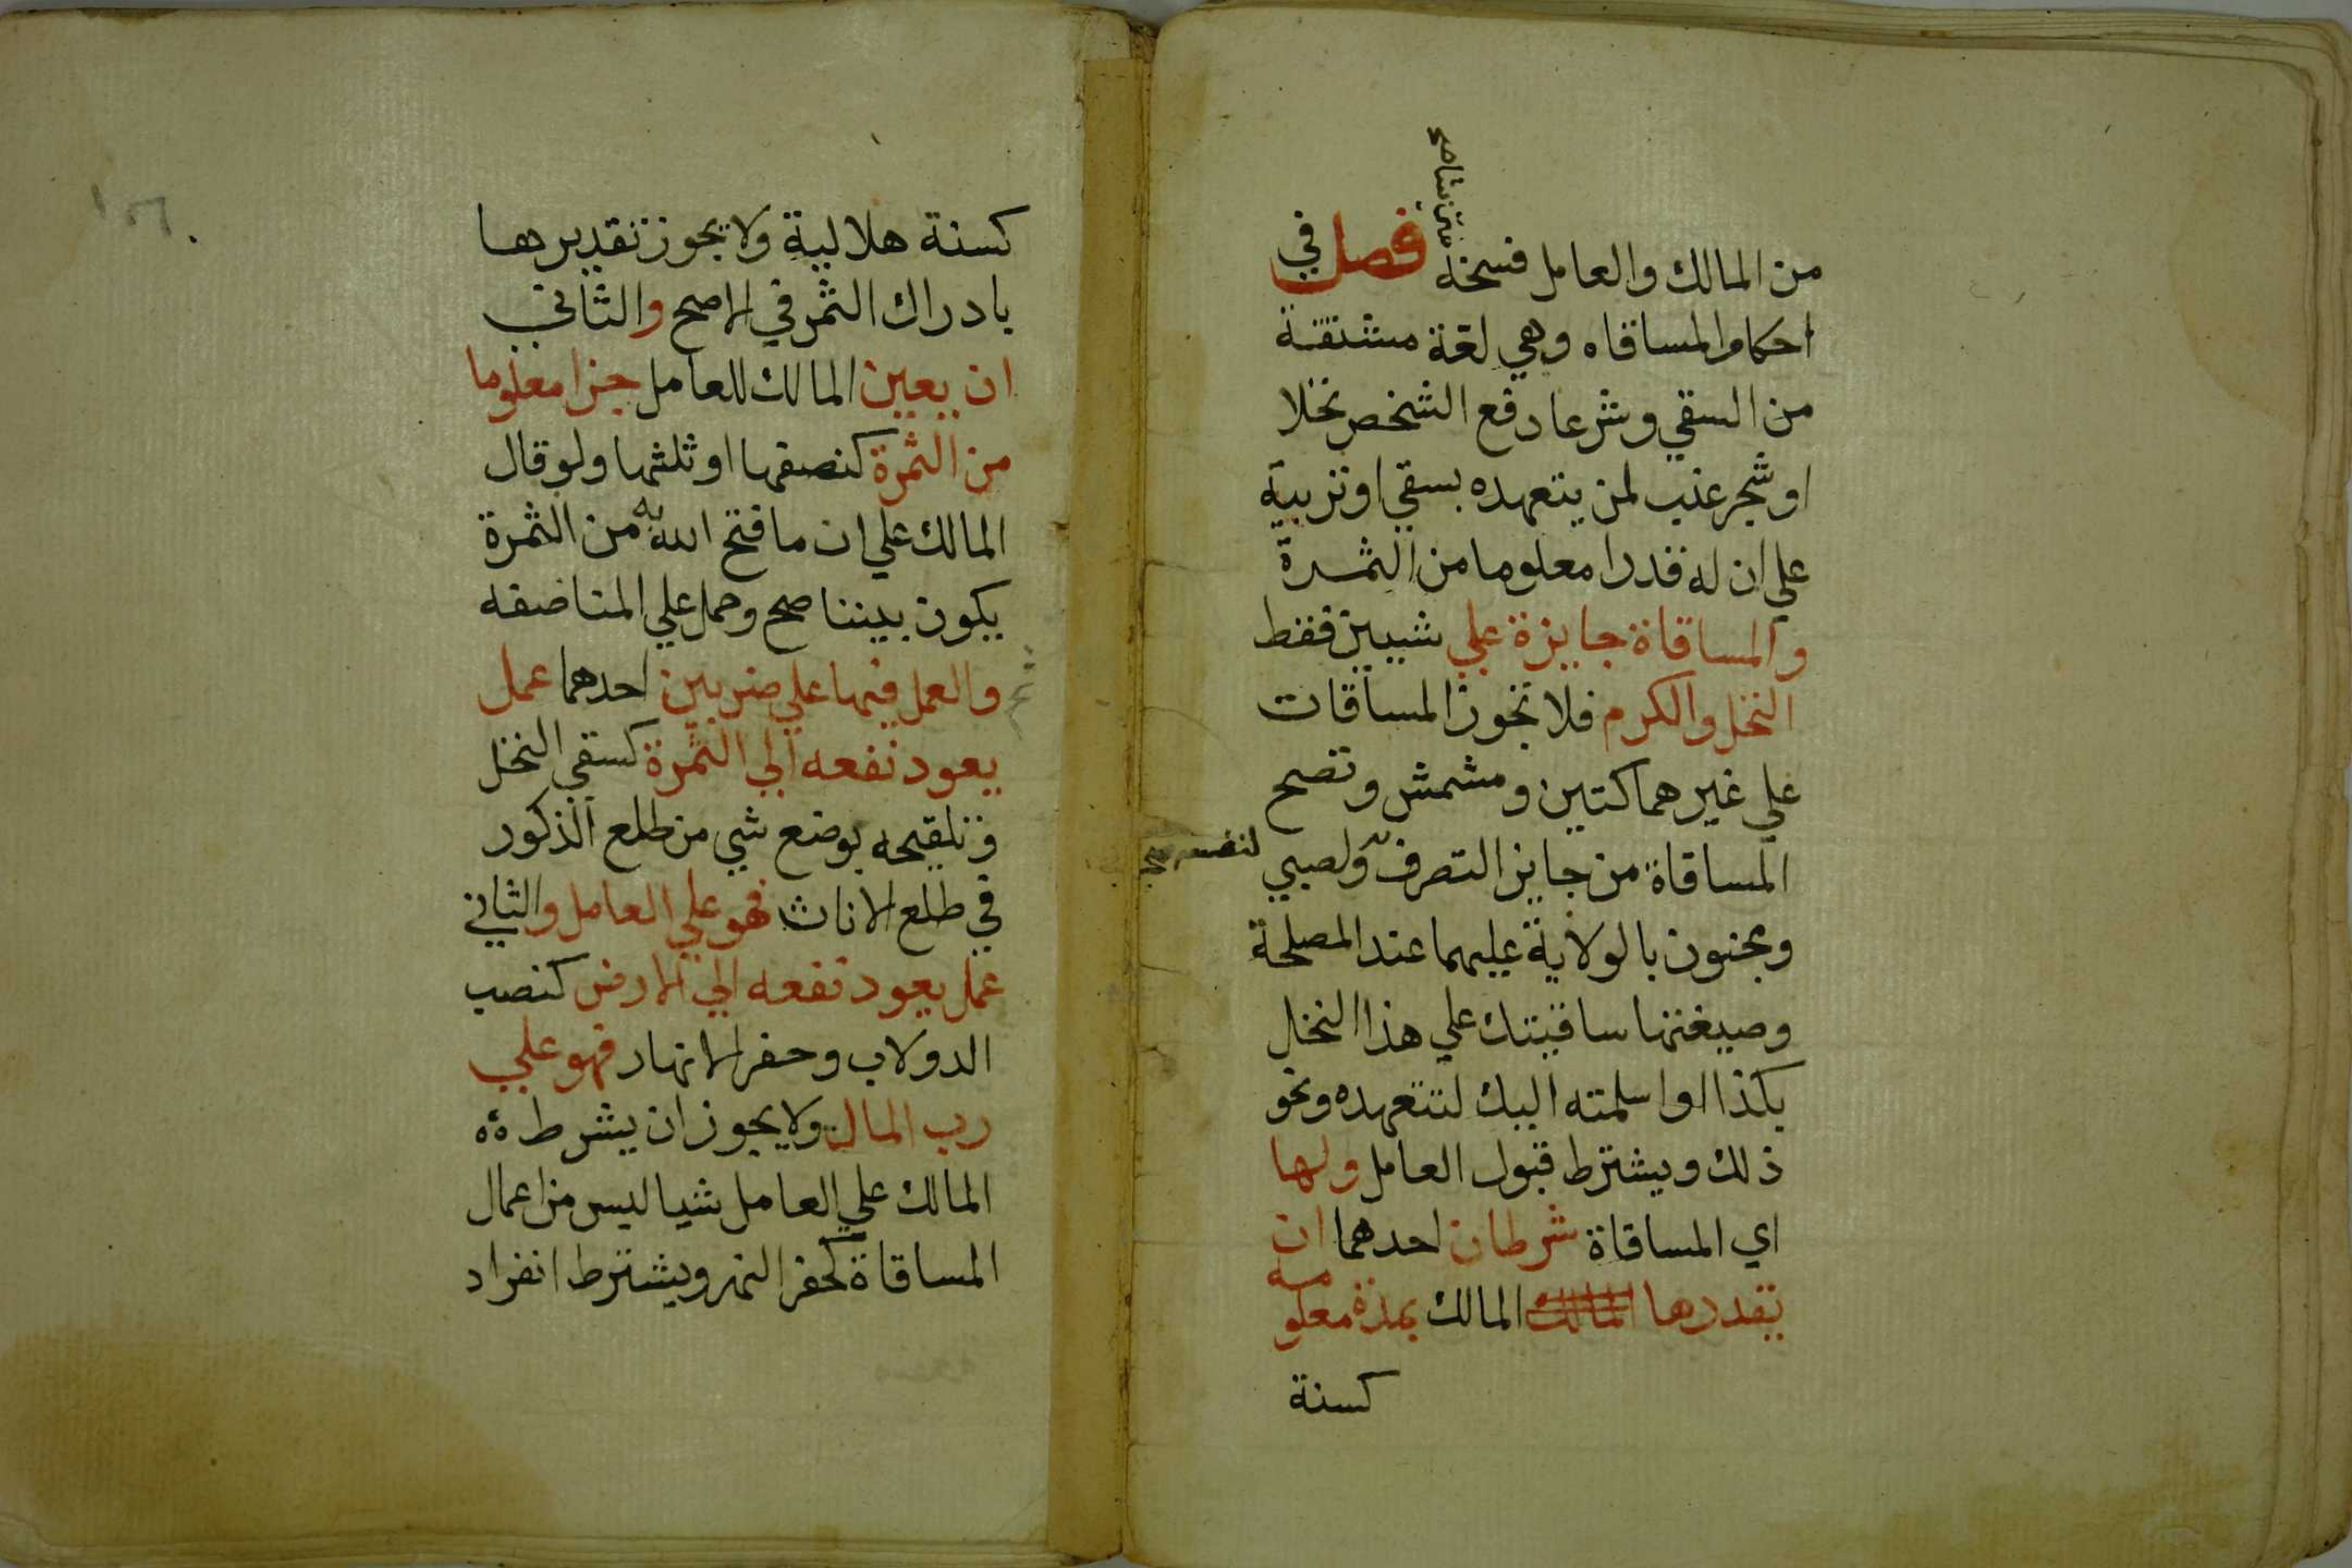 من المالك والعامل فسخه فصل في
احكام المساقاه وهي لغة مشتقة
من السقي وشرعا دفع الشخص نخلا
او شجر عنب لمن يتعهده بسقي او تربية
علي ان له قدرا معلوما من الثمرة
والمساقاة جايزة علي شييين فقط
النخل والكرم فلا تجوز المساقات
علي غيرهما كتين ومشمش وتصح
المساقاة من جايز التصرف ولصبي
لنفسه صح
ومجنون بالولاية عليهما عند المصلحة
وصيغتها ساقيتك علي هذا النخل
بكذا او اسلمته اليك لتتعهده ونحو
ذلك ويشترط قبول العامل ولها
اي المساقاة شرطان احدهما ان
يقدرها المالك المالك بمدة معلومه
كسنة
كسنة هلالية ولا يجوز تقديرها
بادراك الثمر في الاصح والثاني
ان يعين المالك للعامل جزا معلوما
من الثمرة كنصفها او ثلثها ولو قال
المالك علي ان ما فتح الله به من الثمرة
يكون بيننا صح وحمل علي المناصفه
والعمل فيها علي ضربين احدهما عمل
يعود نفعه الي الثمرة كسقي النخل
وتلقيحه بوضع شي من طلع الذكور
في طلع الاناث فهو علي العامل والثاني
عمل يعود نفعه الي الارض كنصب
الدولاب وحفر الانهار فهو علي
رب المال ولا يجوز ان يشرط
المالك علي العامل شيا ليس من اعمال
المساقاة كحفر النهر ويشترط انفراد